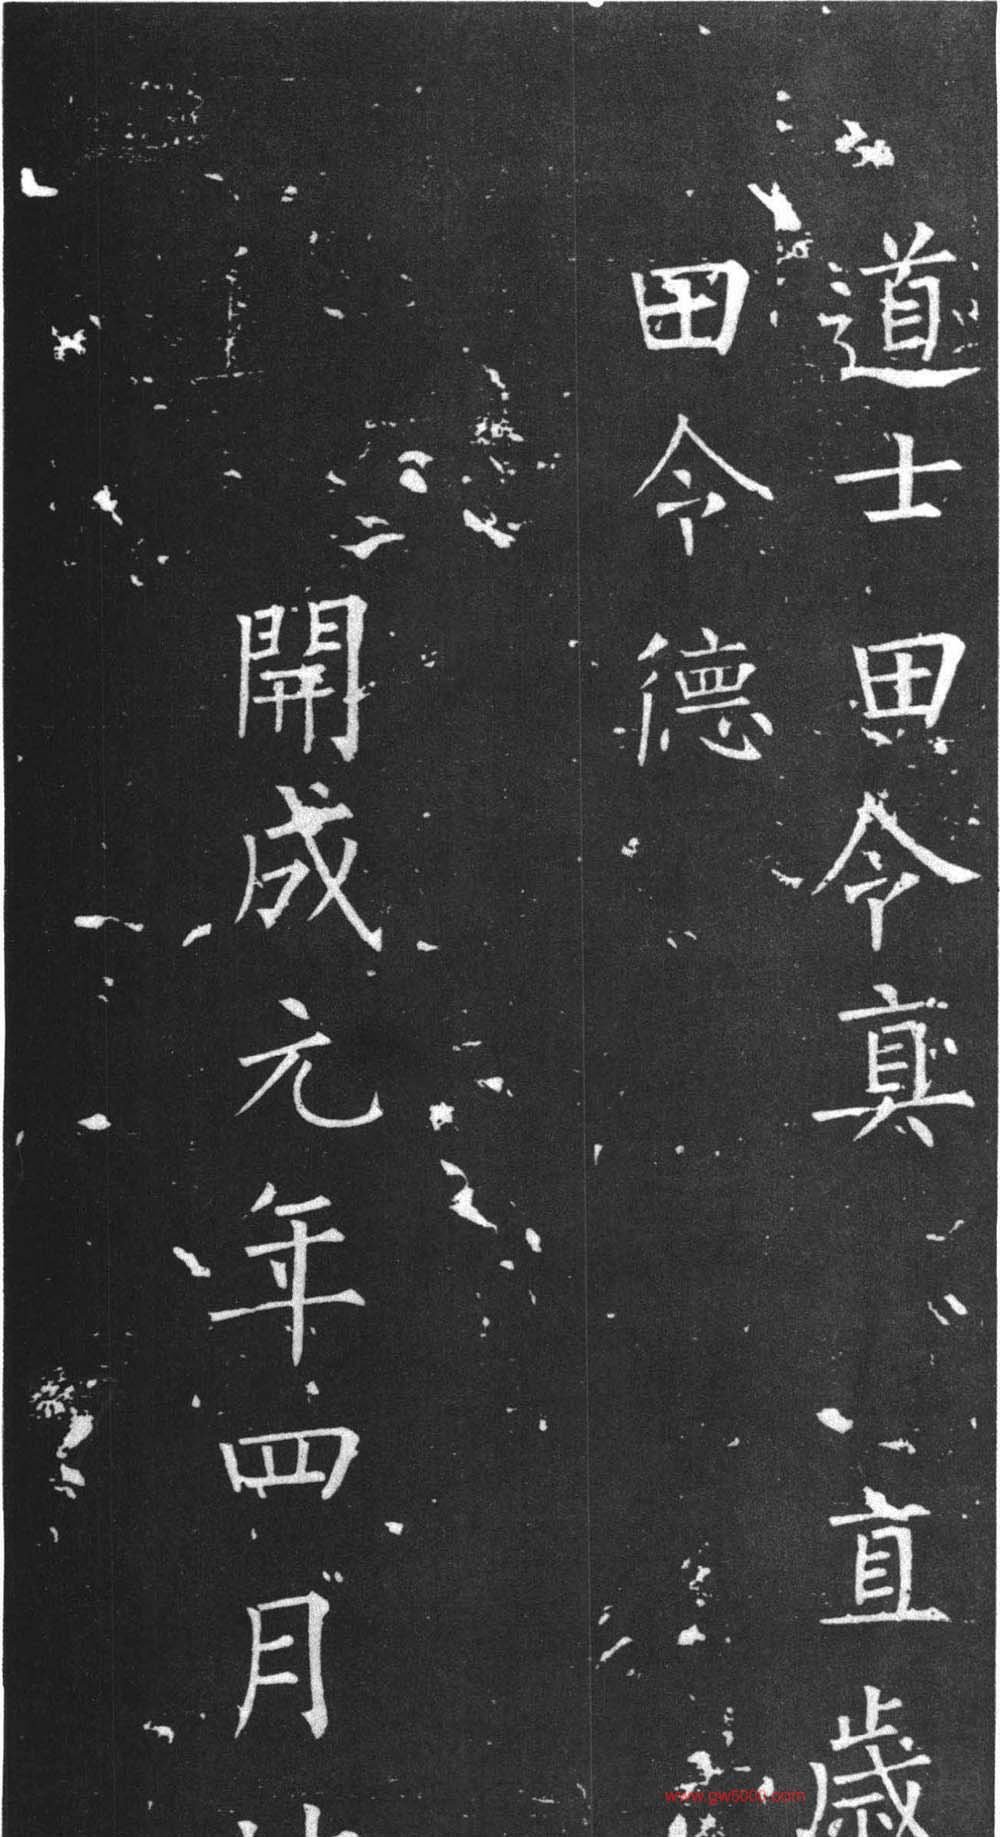 道士田令真 直歲
田令德
開成元年四月
www.gw5000.com